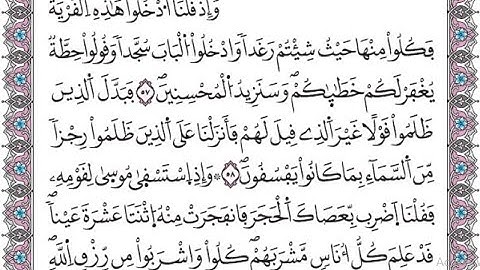 وَإِذْ قُلْنَا اَدْخُلُواْ هَٰذِهِ اِلْقَرْيَةَ
فَكُلُواْ مِنْهَا حَيْثُ شِئْتُمْ رَغَداٗ وَادْخُلُواْ اُلْبَابَ سُجَّداٗ وَقُولُواْ حِطَّةٞ
يُغْفَرْ لَكُمْ خَطَٰيَٰكُمْ وَسَنَزِيدُ اُلْمُحْسِنِينَ ٥٧ فَبَدَّلَ اَلذِينَ
ظَلَمُواْ قَوْلاً غَيْرَ اَلذِے قِيلَ لَهُمْ فَأَنزَلْنَا عَلَى اَلذِينَ ظَلَمُواْ رِجْزاٗ
مِّنَ اَلسَّمَآءِ بِمَا كَانُواْ يَفْسُقُونَ ٥٨ وَإِذِ اِسْتَسْقٜىٰ مُوسٜىٰ لِقَوْمِهِۦ
فَقُلْنَا اَضْرِب بِّعَصَاكَ اَلْحَجَرَ فَانفَجَرَتْ مِنْهُ اُثْنَتَا عَشْرَةَ عَيْناٗ
قَدْ عَلِمَ كُلُّ أُنَاسٖ مَّشْرَبَهُمْ كُلُواْ وَاشْرَبُواْ مِن رِّزْقِ اِللَّهِ